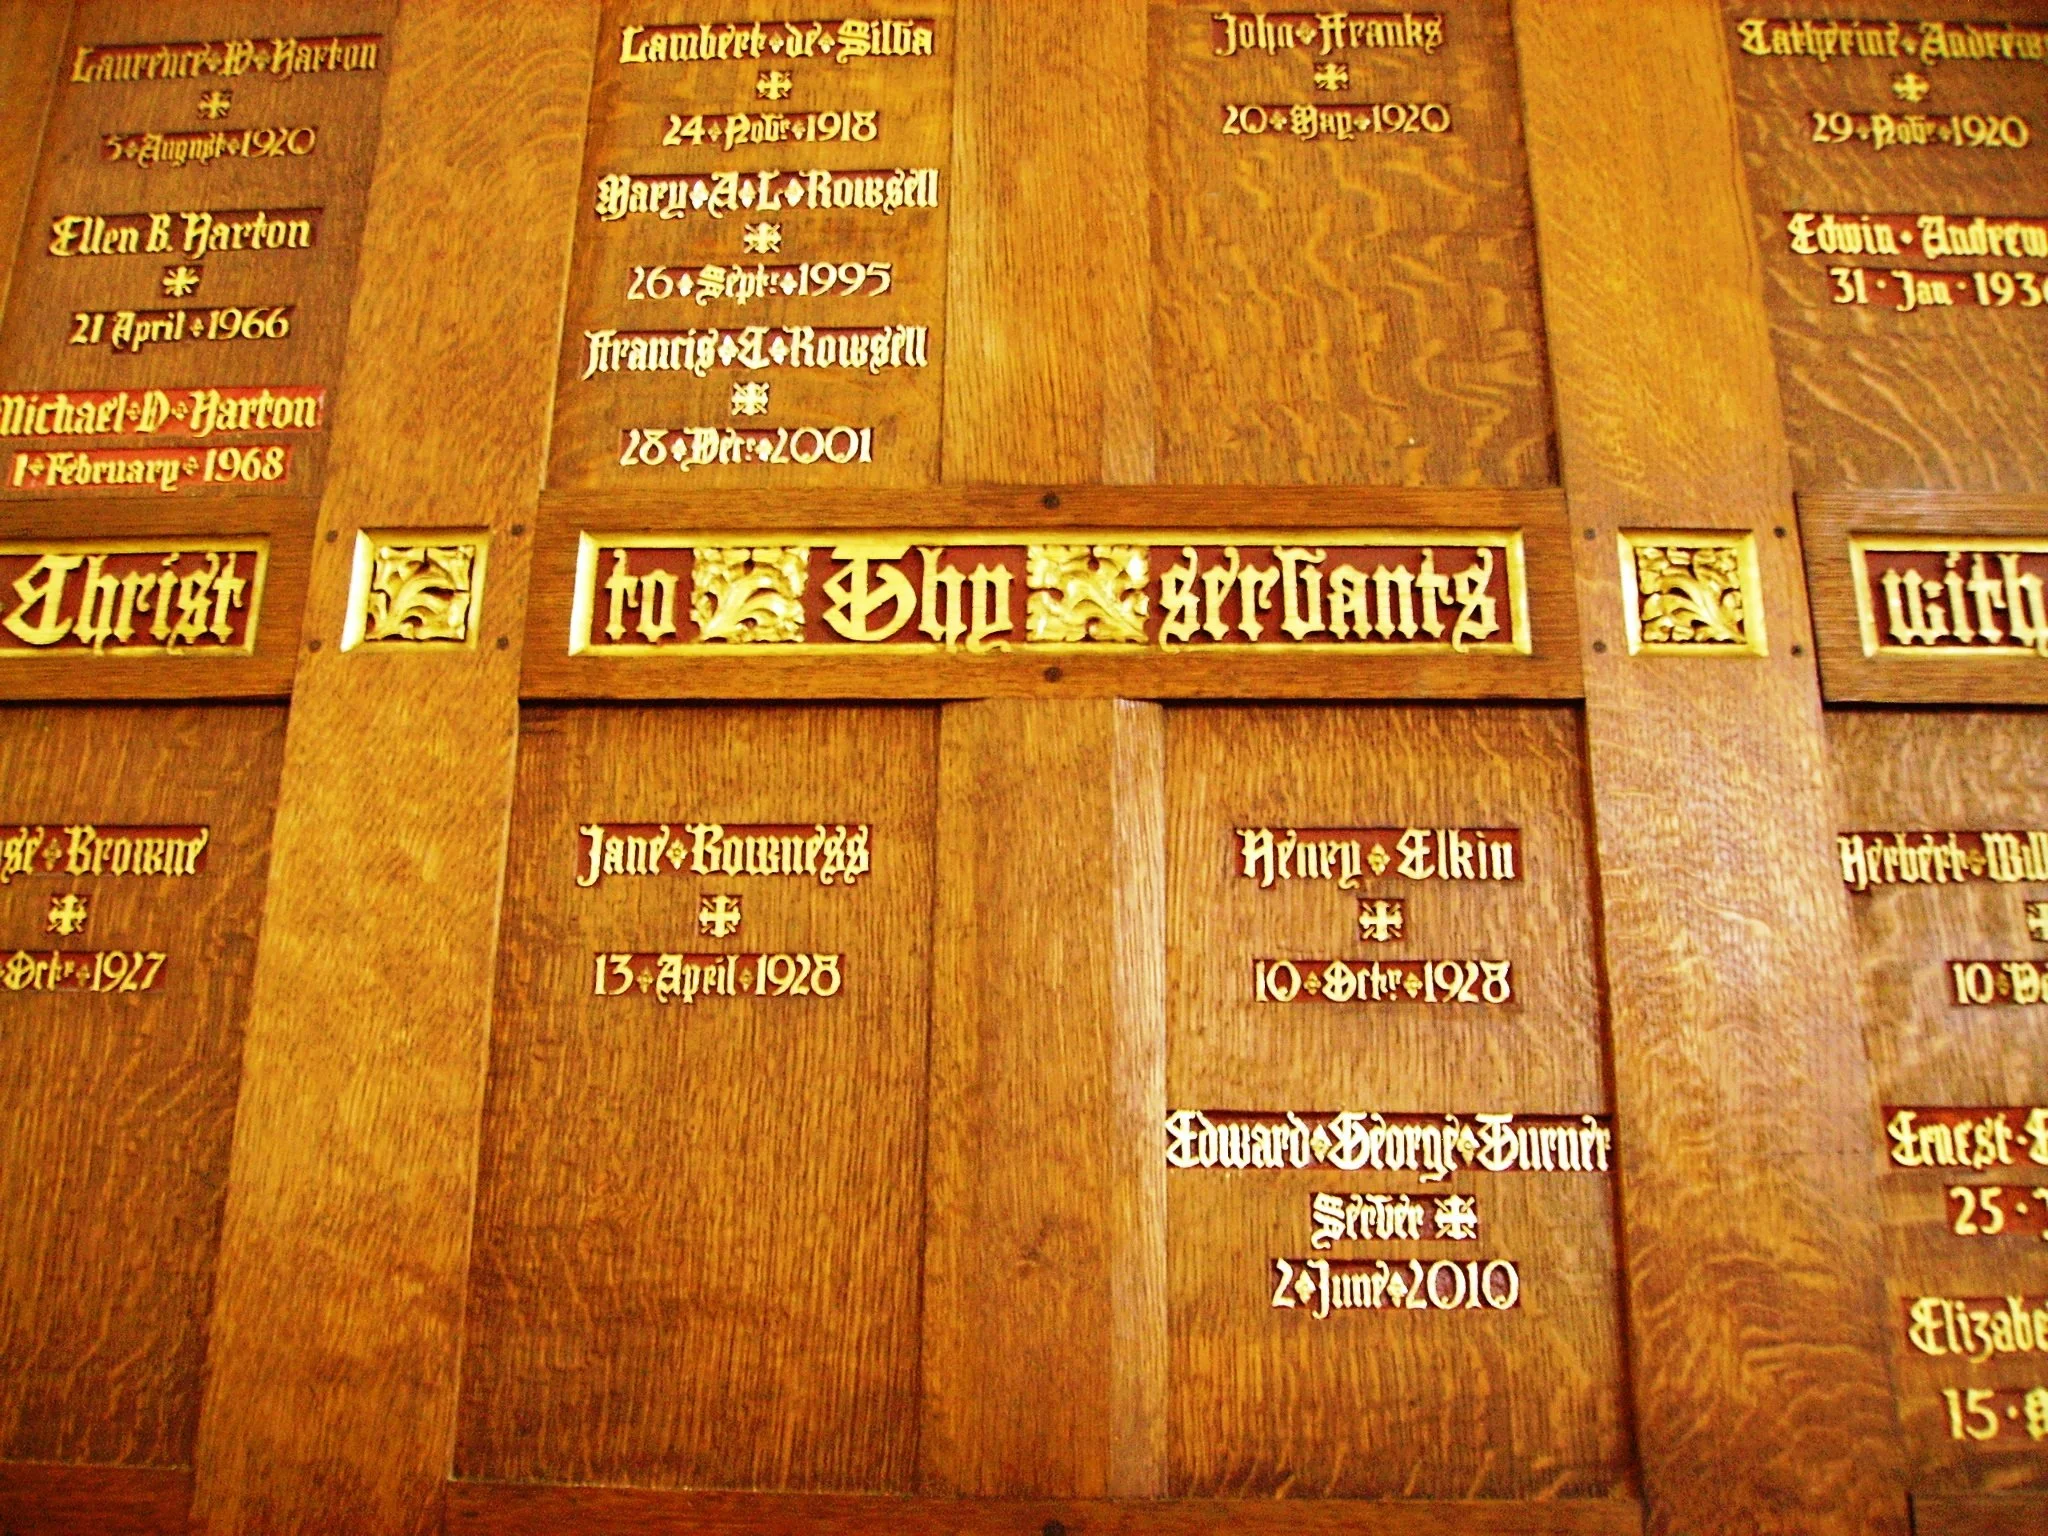 Laurence W Harton
5 August 1920
Ellen B. Harton
21 April 1966
Michael D Harton
1 February 1968
Lambert de Silva
24 Novr 1918
Mary A L Rowsell
26 Septr 1995
Francis C Rowsell
28 Decr 2001
John Ffranks
20 May 1920
Catherine Andrews
29 Novr 1920
Edwin Andrew
31 Jan 193
Christ
to Thy servants
with
Browne
Octr 1927
Jane Bowness
13 April 1928
Henry Elkin
10 Octr 1928
Edward George Turner
Server
2 June 2010
Herbert Will
10
Ernest
25
Elizabe
15